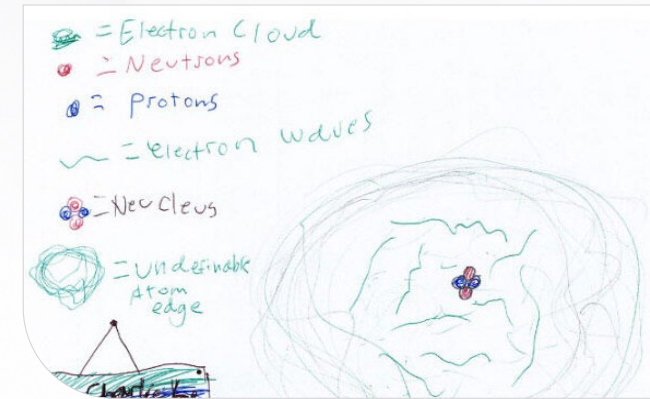 = Electron Cloud
= Neutrons
= Protons
= electron waves
= Neucleus
= undefinable
Atom
edge